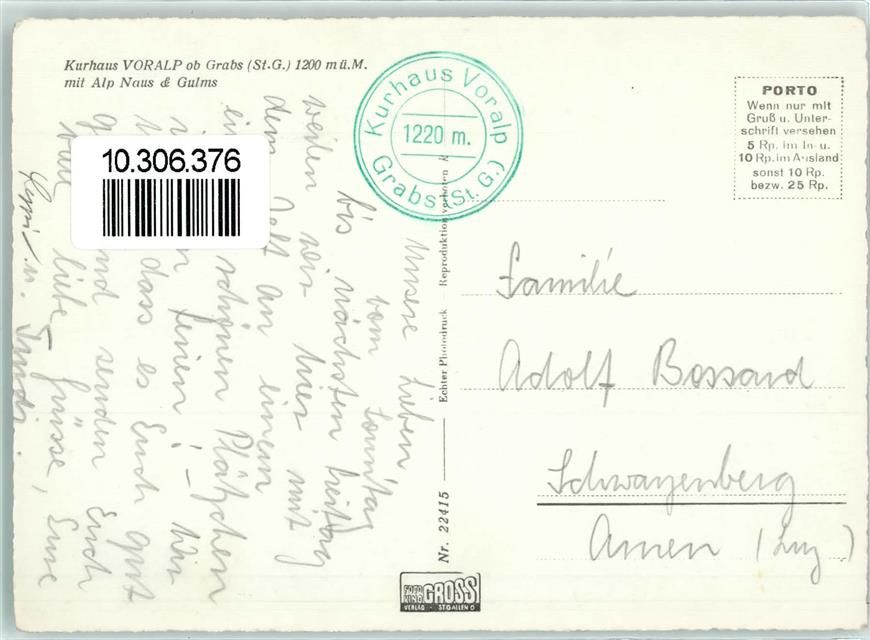 Kurhaus VORALP ob Grabs (St.G.) 1200 m ü.M.
mit Alp Naus & Gulms
10.306.376
Kurhaus Voralp
1220 m.
Grabs (St. G.)
PORTO
Wenn nur mit
Gruß u. Unter-
schrift versehen
5 Rp. im In- u.
10 Rp. im Ausland
sonst 10 Rp.
bezw. 25 Rp.
Unsere Lieben
vom Sonntag
bis nächsten Freitag
weilen wir hier mit
dem Zelt an einem
schönen Plätzchen
in den Ferien! - Wir
dass es Euch gut
und senden Euch
liebe Grüsse, Eure
u. Trudi.
Nr. 22415 — Echter Photodruck — Reproduktion verboten
Familie
Adolf Bossard
Schwarzenberg
Amen (Luz)
FOTO
KINO
GROSS
VERLAG · ST. GALLEN O